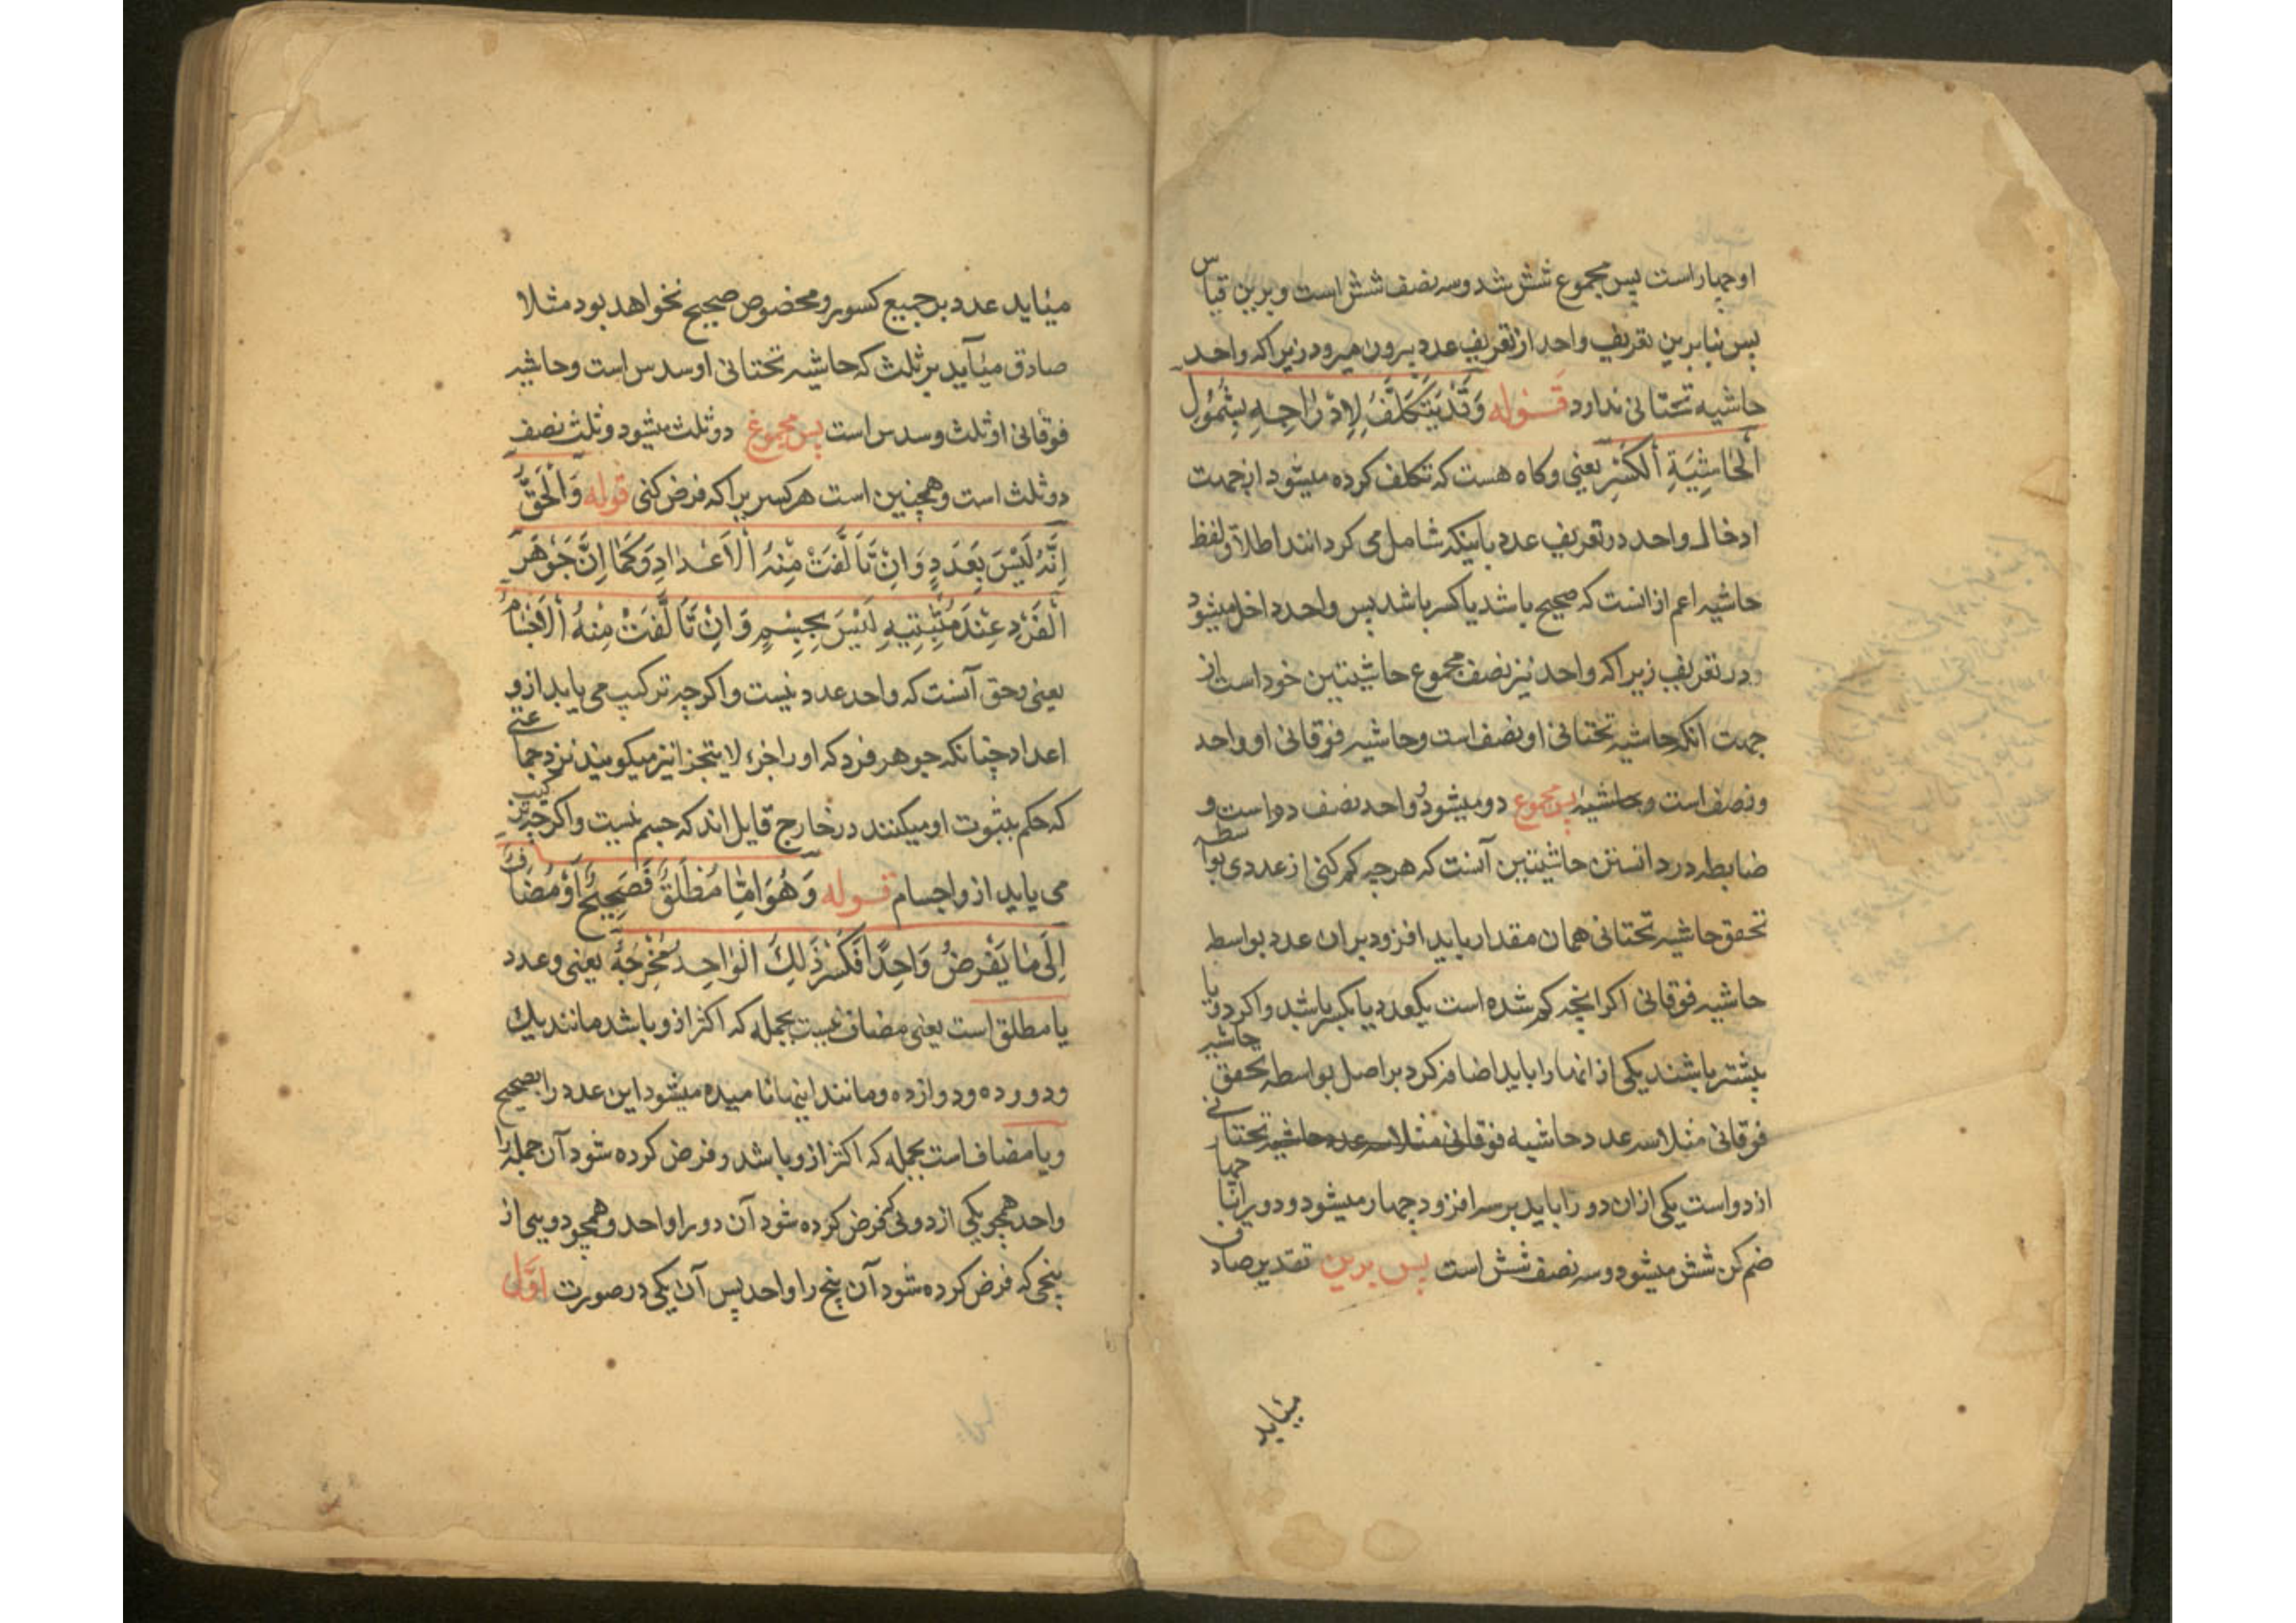 او چهار است پس مجموع شش شد و سه نصف شش است و برین قیاس
پس بنابرین تعریف واحد از تعریف عدد بیرون میرود زیرا که واحد
حاشیه تحتانی ندارد قوله وَقَدْ يَتَكَلَّفُ لِاِدْرَاجِهِ بِشُمُولِ
اَلْحَاشِيَةِ اَلْكَسْرَ یعنی و کاه هست که تکلف کرده میشود از جهت
ادخال واحد در تعریف عدد باینکه شامل می کردانند اطلاق لفظ
حاشیه اعم از انست که صحیح باشد یا کسر باشد پس واحد داخل میشود
در تعریف زیرا که واحد نیز نصف مجموع حاشیتین خود است از
جهت انکه حاشیه تحتانی او نصف است و حاشیه فوقانی او واحد
و نصف است و حاشیه پس مجموع دو میشود و واحد نصف دو است و
ضابطه در دانستن حاشیتین آنست که هر چه کم کنی از عددی بواسطه
تحقق حاشیه تحتانی همان مقدار باید افزود بر ان عدد بواسطه
حاشیه فوقانی اکر انچه کم شده است یکعدد یا یکسر باشد و اکر دو یا
بیشتر باشند یکی از انها را باید اضافه کرد بر اصل بواسطه تحقق حاشیه
فوقانی مثلا سه عدد حاشیه فوقانی مثلا سه عدد حاشیه تحتانی
از دو است یکی از ان دو را باید بر سه افزود چهار میشود و دو را با چهار
ضم کن شش میشود و سه نصف شش است پس برین تقدیر صادق
میٔاید
میٔاید عدد بر جمیع کسور و مخصوص صحیح نخواهد بود مثلا
صادق میٔآید بر ثلث که حاشیه تحتانی او سدس است و حاشیه
فوقانی او ثلث و سدس است پس مجموع دو ثلث میشود و ثلث نصف
دو ثلث است و همچنین است هر کسریرا که فرض کنی قوله وَالْحَقُّ
اِنَّهُ لَيْسَ بِعَدَدٍ وَاِنْ تَاَلَّفَتْ مِنْهُ اَلْاَعْدَادِ وَكَمَا اِنَّ جَوْهَرَ
اَلْفَرْدِ عِنْدَ مُثْبِتِيهِ لَيْسَ بِجِسْمٍ وَاِنْ تَاَلَّفَتْ مِنْهُ اَلْاَجْسَامُ
یعنی و حق آنست که واحد عدد نیست و اکرچه ترکیب می یابد ازو
اعداد چنانکه جوهر فرد که او را جزء لا یتجزا نیز میکویند نزد جماعتی
که حکم بثبوت او میکنند در خارج قایل اند که جسم نیست و اکرچه ترکیب
می یابد ازو اجسام قوله وَهُوَ اِمَّا مُطْلَقٌ فَصَحِيحٌ اَوْ مُضَافٌ
اِلَى مَا يَفْرِضُ وَاحِدًا فَكَسْرٌ ذَلِكَ الْوَاحِدُ مَخْرَجُهُ یعنی و عدد
یا مطلق است یعنی مضاف نیست بجمله که اکثر ازو باشد مانند یک
و دو و ده و دوازده و مانند اینها نامیده میشود این عدد را بصحیح
و یا مضاف است بجمله که اکثر ازو باشد و فرض کرده شود آن جمله را
واحد همچو یکی از دوئی که فرض کرده شود آن دو را واحد و همچو دویی از
پنجی که فرض کرده شود آن پنج را واحد پس آن یکی در صورت اوّل